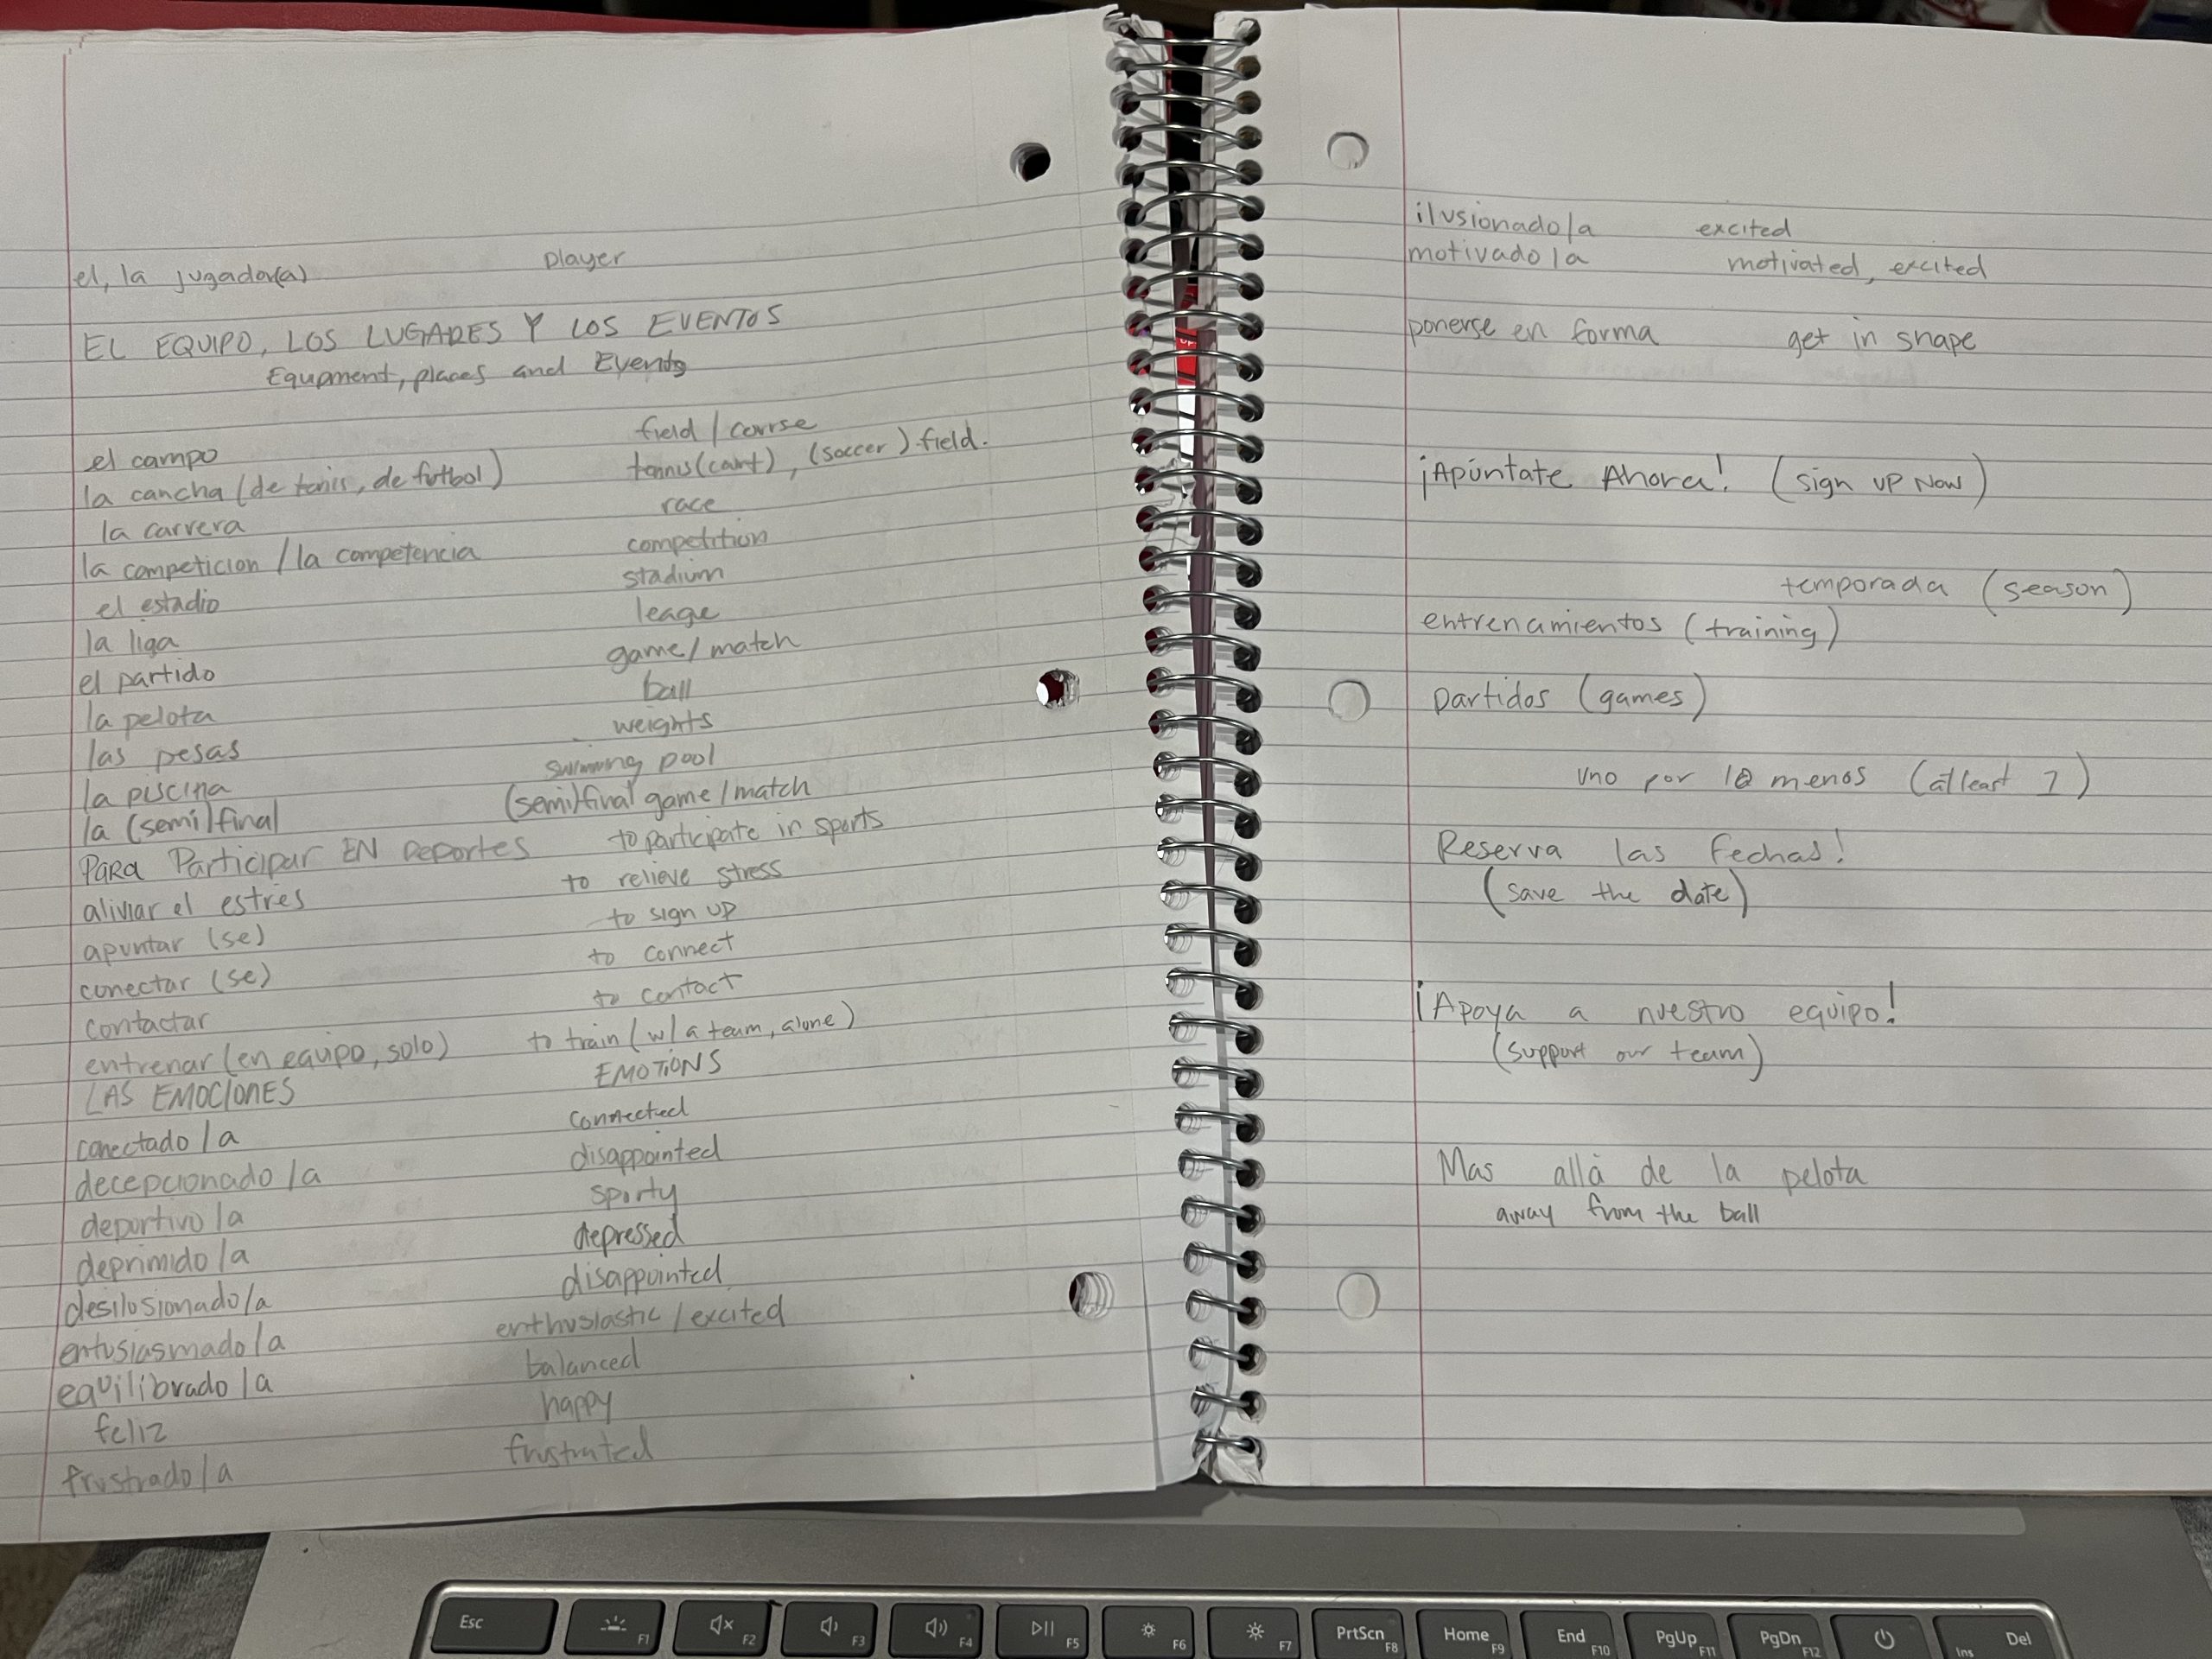 el, la jugador(a) player
EL EQUIPO, LOS LUGARES Y LOS EVENTOS
Equpment, places and Events
el campo field / course
la cancha (de tenis, de futbol) tennis (court), (soccer) field.
la carrera race
la competicion / la competencia competition
el estadio stadium
la liga leage
el partido game/match
la pelota ball
las pesas weights
la piscina swimming pool
la (semi)final (semi)final game/match
PARA Participar EN Deportes to participate in sports
aliviar el estres to relieve stress
apuntar (se) to sign up
conectar (se) to connect
contactar to contact
entrenar (en equipo, solo) to train (w/ a team, alone)
LAS EMOCIONES EMOTIONS
conectado/a connected
decepcionado/a disappointed
deportivo/a sporty
deprimido/a depressed
desilusionado/a disappointed
entusiasmado/a enthusiastic/excited
equilibrado/a balanced
feliz happy
frustrado/a frustrated
ilusionado/a excited
motivado/a motivated, excited
ponerse en forma get in shape
¡Apúntate Ahora! (sign up Now)
temporada (season)
entrenamientos (training)
Partidos (games)
uno por lo menos (atleast 1)
Reserva las Fechas!
(save the date)
¡Apoya a nuestro equipo!
(support our team)
Mas allá de la pelota
away from the ball
Esc F1 F2 F3 F4 F5 F6 F7 PrtScn F8 Home F9 End F10 PgUp F11 PgDn F12 Ins Del